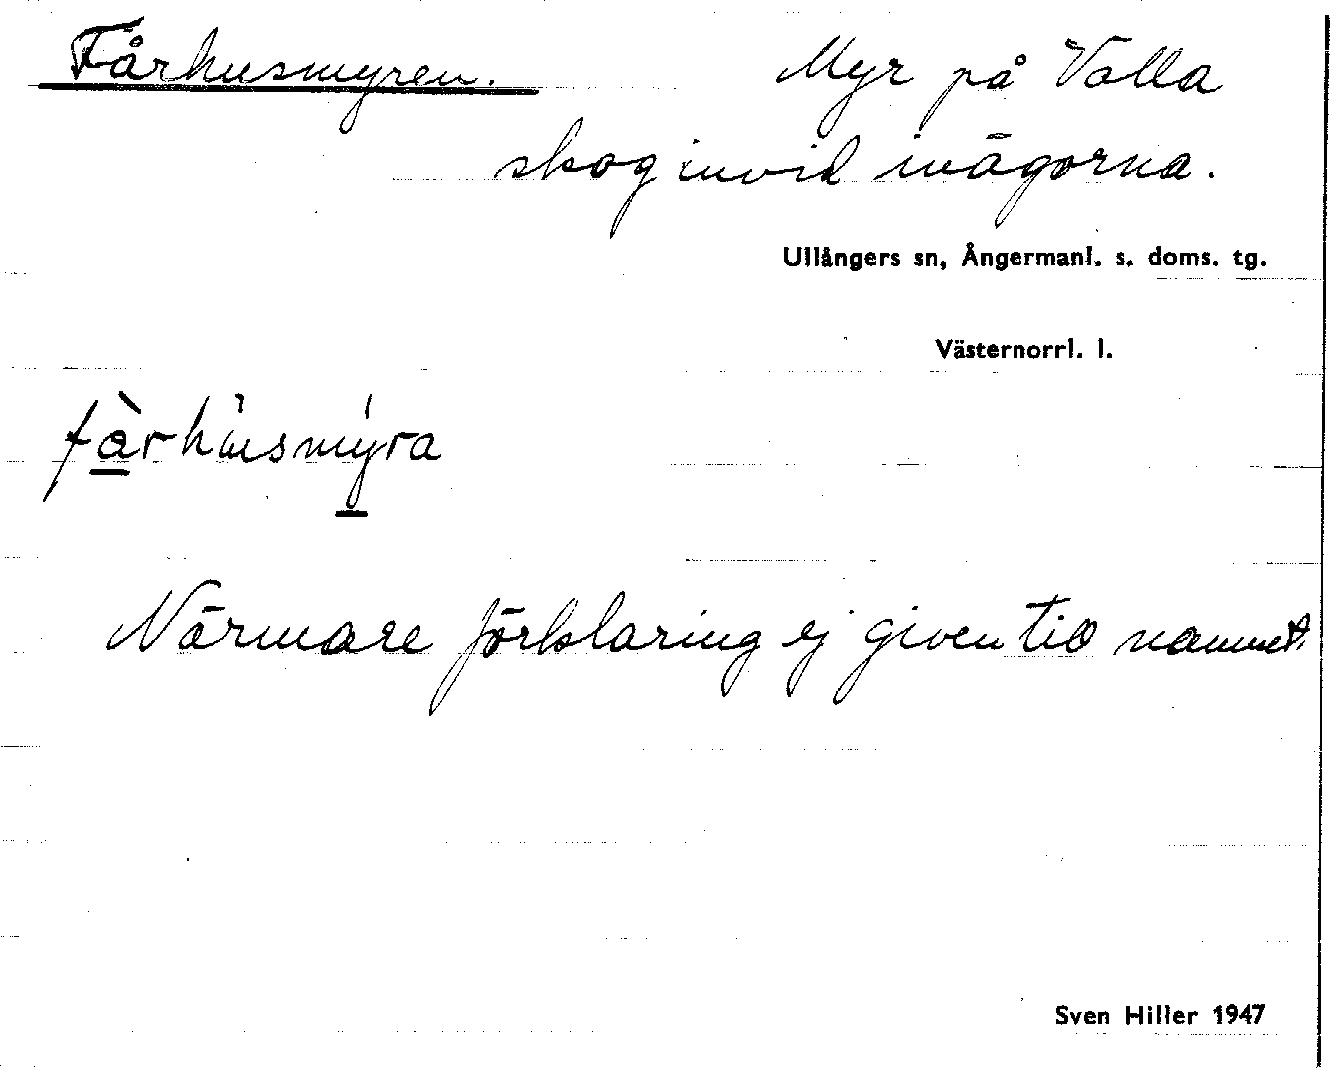 Fårhusmyren. Myr på Valla
skog invid inägorna.
Ullångers sn, Ångermanl. s. doms. tg.
Västernorrl. l.
fàrhu̇smýra
Närmare förklaring ej given till namnet.
Sven Hiller 1947